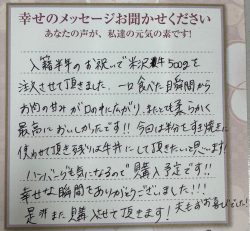 幸せのメッセージお聞かせください
あなたの声が、私達の元気の素です!
入籍半年のお祝いで米沢牛500gを
注文させて頂きました。一口食べた瞬間から
お肉の甘みが口の中に広がり、またとても柔らかく
最高においしかったです!!今回は半分すき焼きに
使わせて頂き残りは牛丼にして頂きたいと思います!
ハンバーグも気になるので購入予定です!!
幸せな瞬間をありがとうございました!!!
是非また購入させて頂きます!夫もお喜びでした!